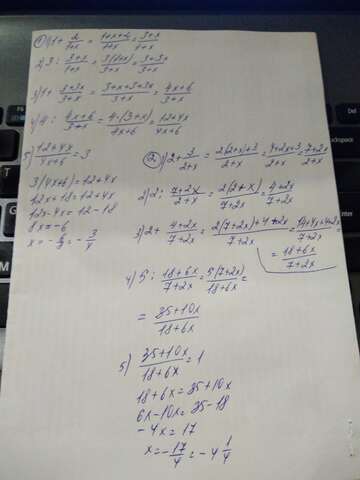 ① 1) 1 + 2/(1+x) = (1+x+2)/(1+x) = (3+x)/(1+x)
2) 3 : (3+x)/(1+x) = 3(1+x)/(3+x) = (3+3x)/(3+x)
3) 1 + (3+3x)/(3+x) = (3+x+3+3x)/(3+x) = (4x+6)/(3+x)
4) 4 : (4x+6)/(3+x) = 4·(3+x)/(4x+6) = (12+4x)/(4x+6)
5) (12+4x)/(4x+6) = 3
3(4x+6) = 12+4x
12x+18 = 12+4x
12x-4x = 12-18
8x = -6
x = -6/8 = -3/4
② 1) 2 + 3/(2+x) = (2(2+x)+3)/(2+x) = (4+2x+3)/(2+x) = (7+2x)/(2+x)
2) 2 : (7+2x)/(2+x) = 2(2+x)/(7+2x) = (4+2x)/(7+2x)
3) 2 + (4+2x)/(7+2x) = (2(7+2x)+4+2x)/(7+2x) = (14+4x+4+2x)/(7+2x) =
= (18+6x)/(7+2x)
4) 5 : (18+6x)/(7+2x) = 5(7+2x)/(18+6x) =
= (35+10x)/(18+6x)
5) (35+10x)/(18+6x) = 1
18+6x = 35+10x
6x-10x = 35-18
-4x = 17
x = -17/4 = -4 1/4